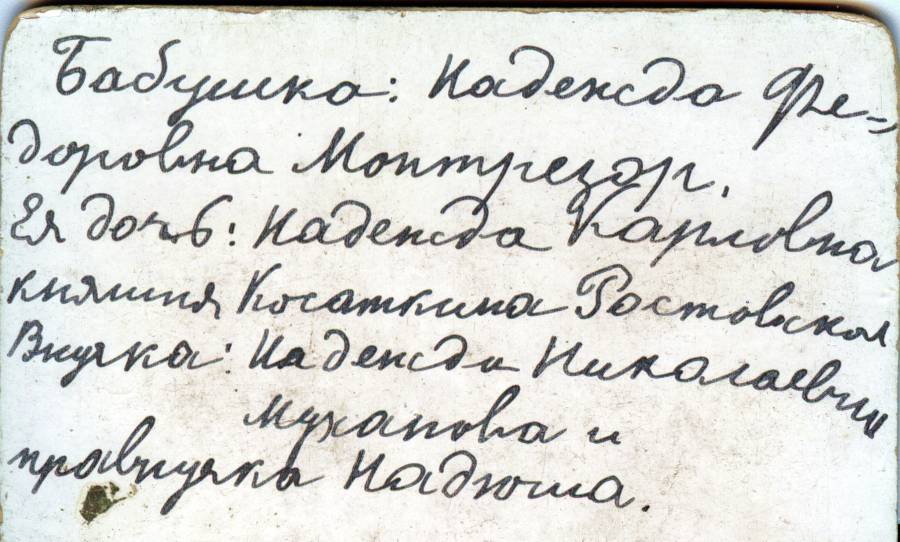 Бабушка: Надежда Фе-
доровна Монтрезор.
Ея дочь: Надежда Карловна
княгиня Косаткина Ростовская
Внучка: Надежда Николаевна
Муханова и
правнучка Надюша.